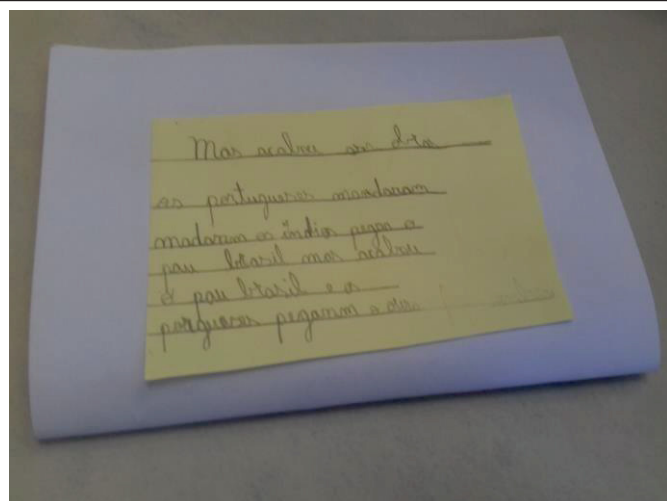 Mas acabou
os portugueses mandaram
madaram os índios pegar o
pau brasil mas acabou
o pau brasil e os
porgueses pegaram o